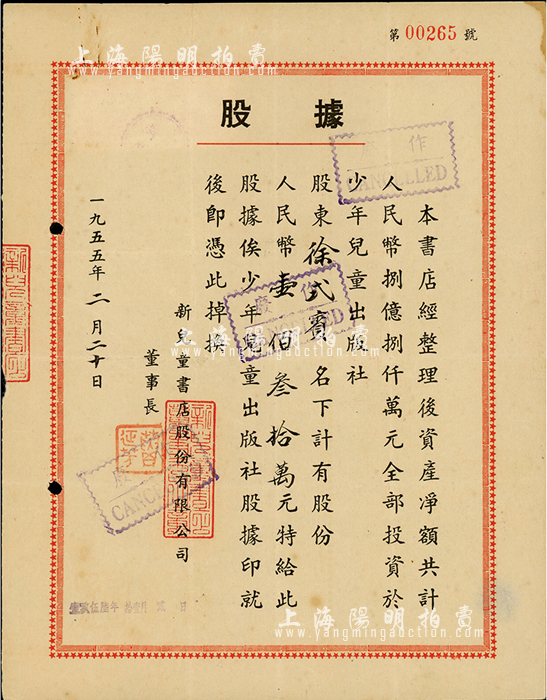 第 00265 號
上海陽明拍賣
www.yangmingauction.com
股據
本書店經整理後資產淨額共計
人民幣捌億捌仟萬元全部投資於
少年兒童出版社
股東徐式賓名下計有股份
人民幣壹佰叁拾萬元特給此
股據俟少年兒童出版社股據印就
後卽憑此掉換
新兒童書店股份有限公司
董事長
一九五五年二月二十日
作
CANCELLED
作廢
CANCELLED
CANCELLED
上海陽明拍賣
www.yangmingauction.com